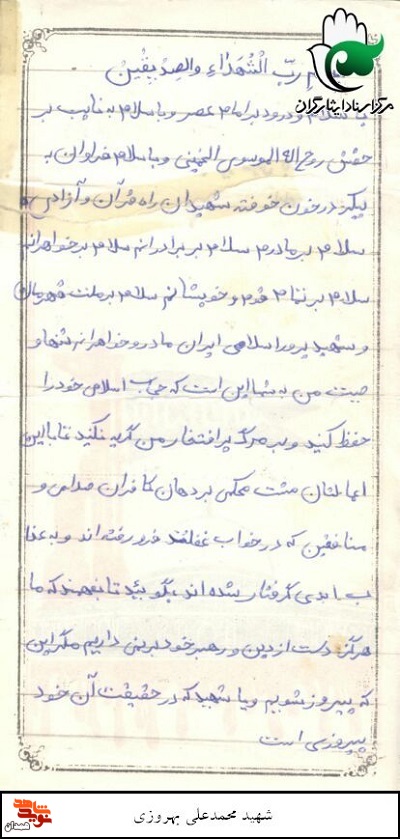 مرکز اسناد ایثارگران
رب الشهداء والصدیقین
سلام و درود بر امام عصر و با سلام به نایب بر
حقش روح الله الموسوی الخمینی و با سلام فراوان به
پیکر در خون خفته شهیدان راه قرآن و آزادی
سلام بر مادرم سلام بر برادرانم سلام بر خواهرانم
سلام بر تمام قوم و خویشانم سلام بر ملت قهرمان
و شهید پرور اسلامی ایران مادر و خواهرانم تنها و
صیت من به شما این است که حجاب اسلامی خود را
حفظ کنید و بر مرگ پر افتخار من گریه نکنید تا با این
اعمالتان مشت محکمی بر دهان کافران و
منافقین که در خواب غفلت فرو رفته اند و به عذا
ب ابدی گرفتار شده اند، بگوئید تا بفهمند که ما
هرگز دست از دین و رهبر خود برنمی داریم مگر این
که پیروز شویم و یا شهید که در حقیقت آن خود
پیروزی است
شهید محمدعلی بهروزی
نوید شاهد
همدان